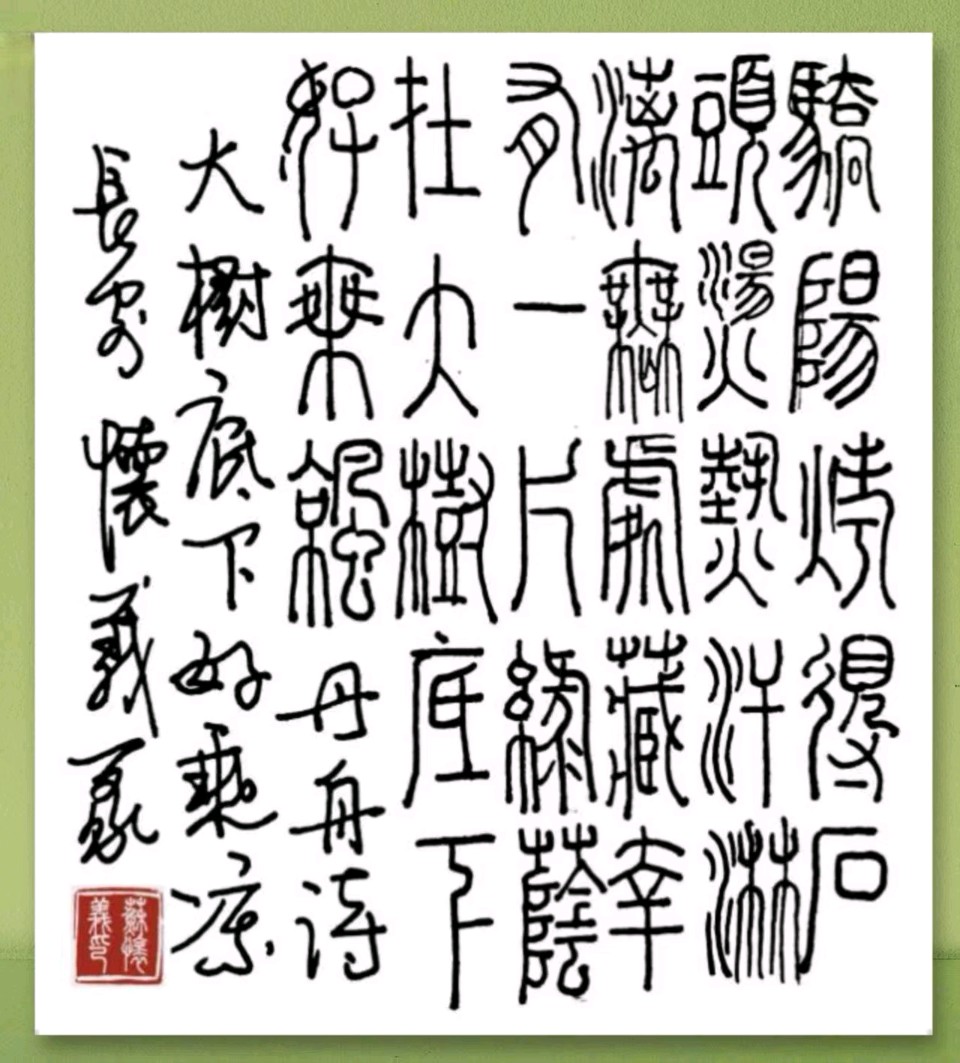 驕陽烤得石
頭燙熱汗淋
漓無處藏幸
有一片綠蔭
在大樹底下
好乘涼 丹舟詩
大樹底下好乘涼
長安 懷義篆
蘇懷義印